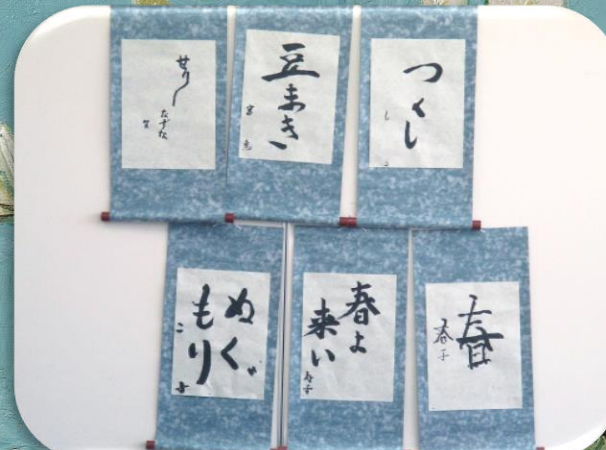 せり
なずな
豆まき
つくし
ぬぐ
もり
春よ
来い
春
春子